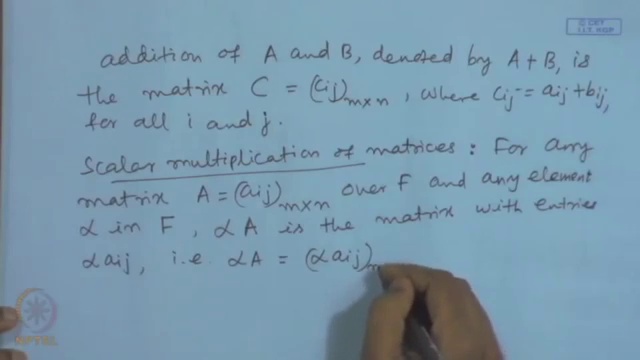 © CET
I.I.T. KGP
addition of A and B, denoted by A+B, is
the matrix C = (cij)m×n, where cij = aij + bij,
for all i and j.
Scalar multiplication of matrices : For any
matrix A = (aij)m×n over F and any element
α in F, αA is the matrix with entries
αaij, i.e. αA = (αaij)m
NPTEL